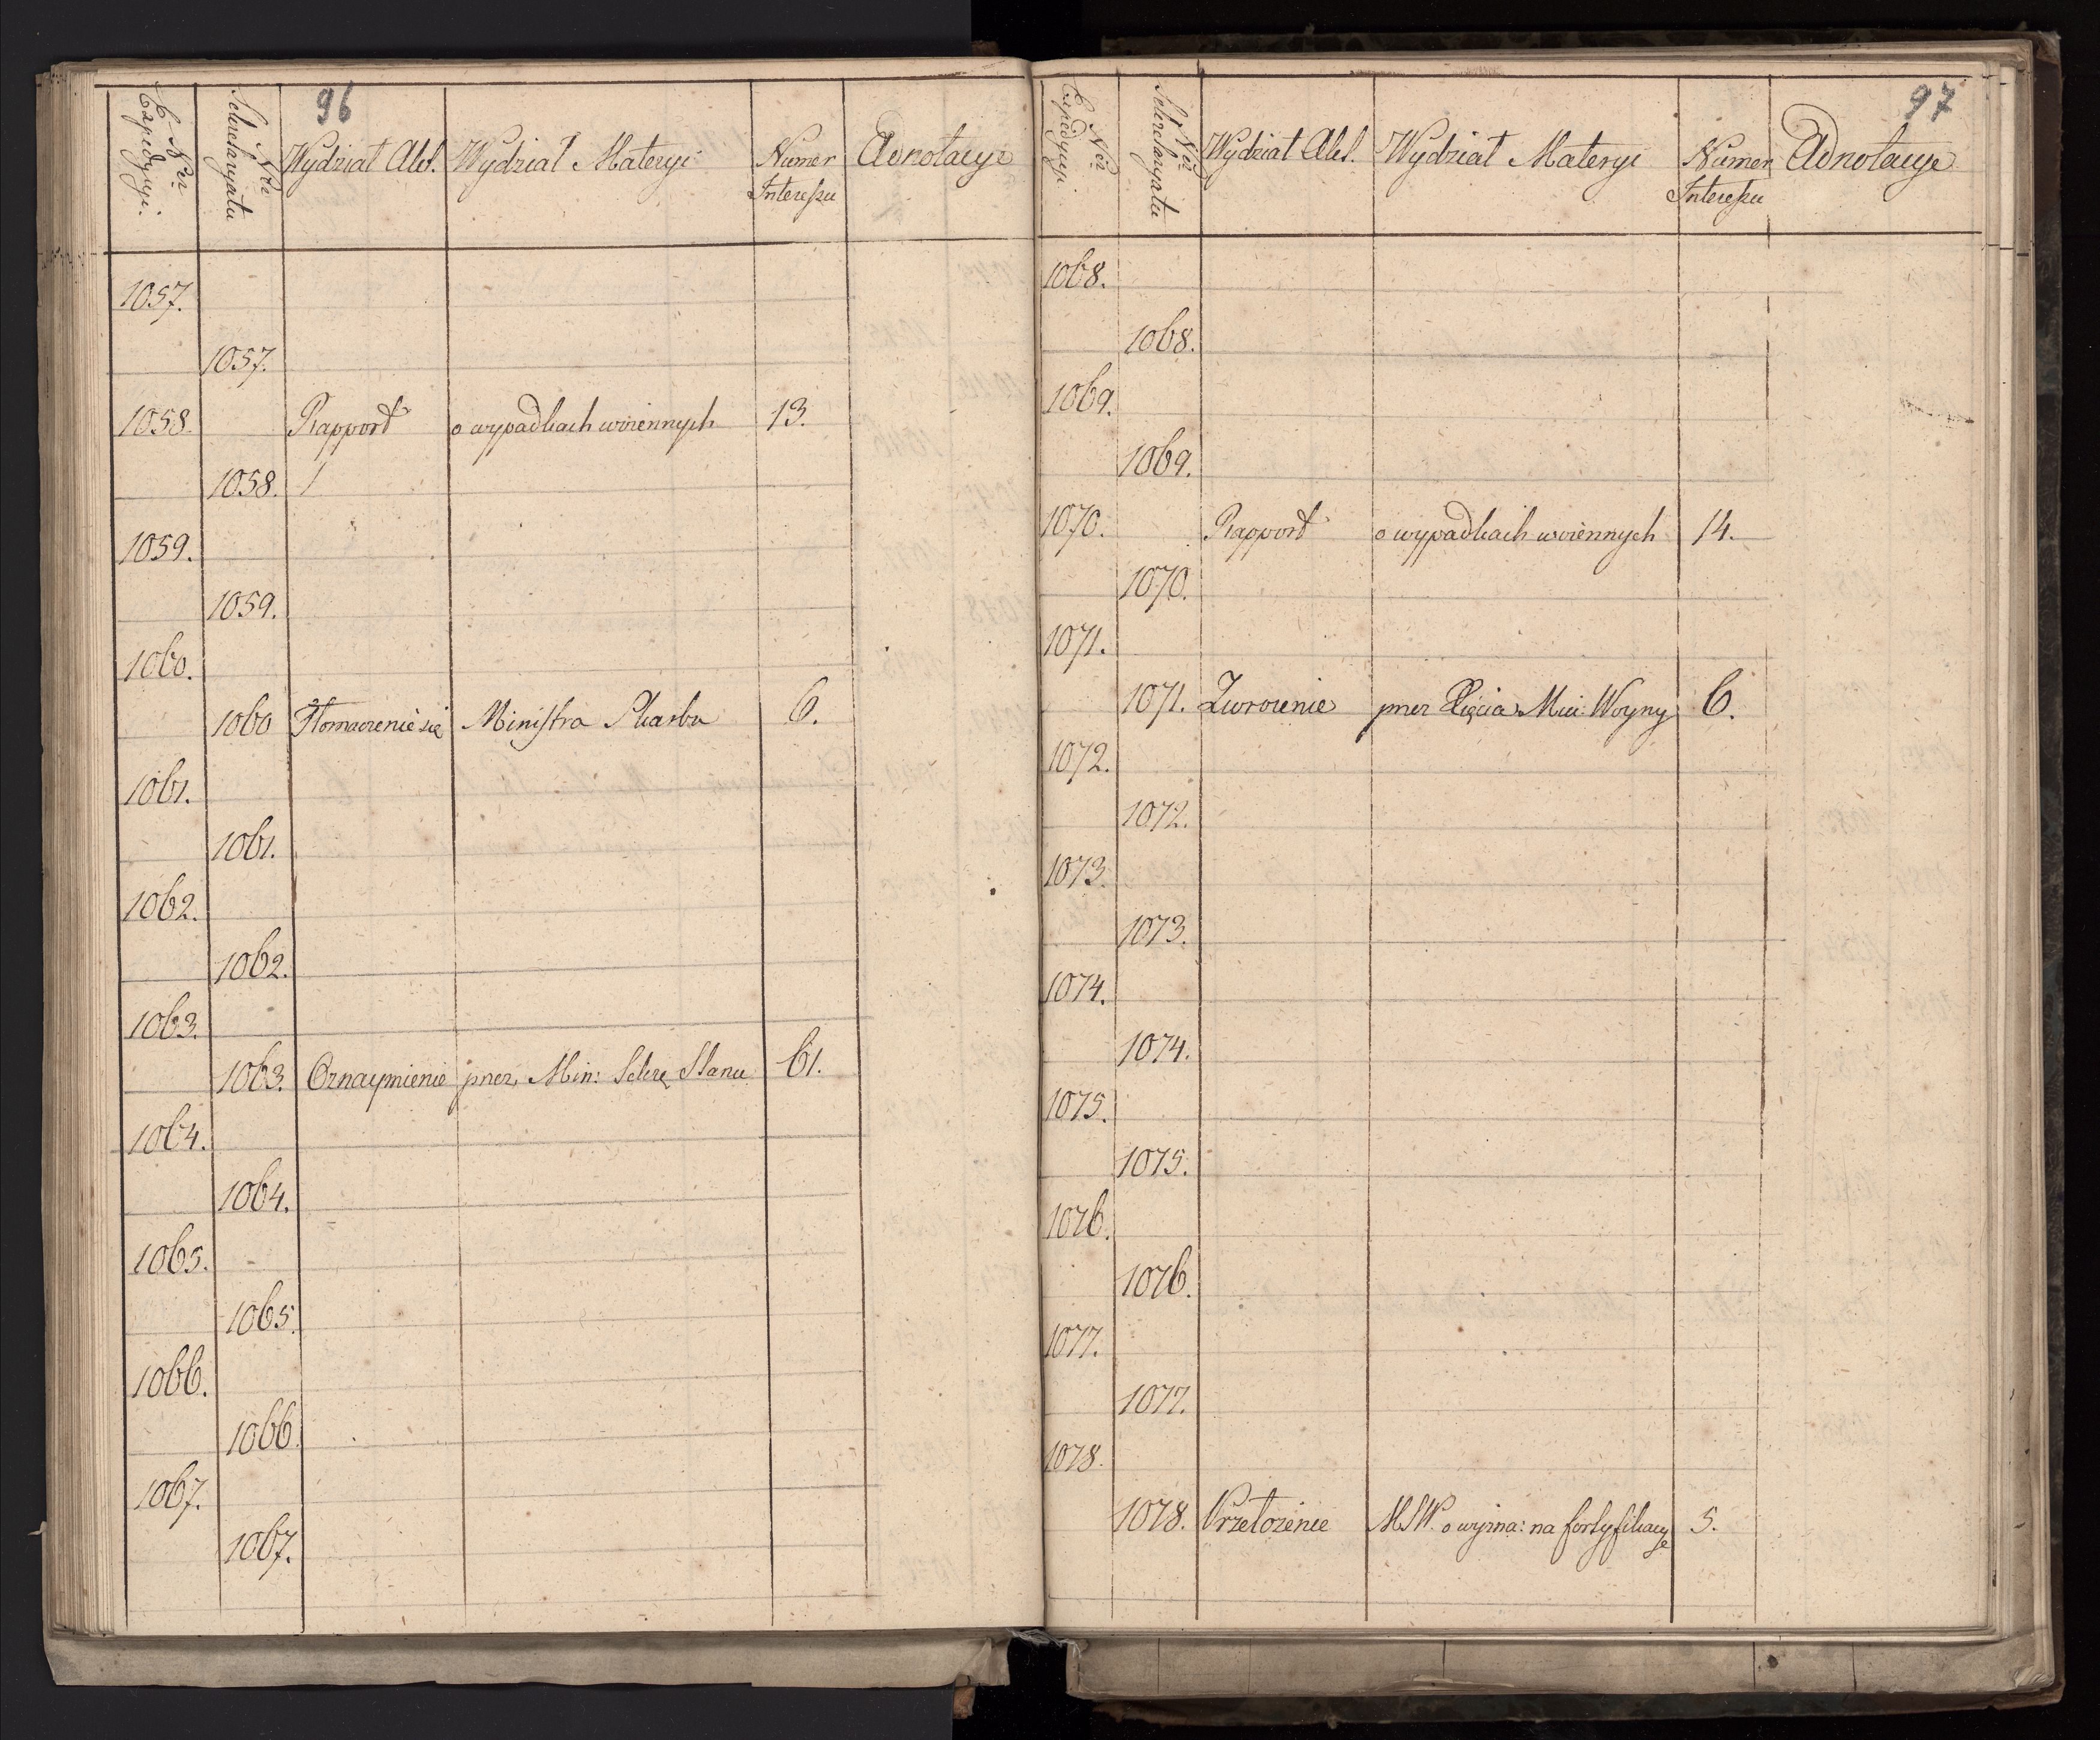 96
Nr Expedycyi. Nr Sekretaryatu Wydział Akt. Wydział Materyi Numer Interessu Adnotacye
1057.
1057.
1058. Rapport o wypadkach woiennych 13.
1058.
1059.
1059.
1060.
1060 Tłomaczenie się Ministra Skarbu 6.
1061.
1061.
1062.
1062.
1063.
1063. Oznaymienie przez Min: Sekre Stanu 61.
1064.
1064.
1065.
1065.
1066.
1066.
1067.
1067.
97
Nr Expedycyi Nr Sekretaryatu Wydział Akt. Wydział Materyi Numer Interessu Adnotacye
1068.
1068.
1069.
1069.
1070. Rapport o wypadkach woiennych 14.
1070.
1071.
1071. Zwrocenie przez Xięcia Woyny 6.
1072.
1072.
1073.
1073.
1074.
1074.
1075.
1075.
1076.
1076.
1077.
1077.
1078.
1078. Przełożenie MSW. o wyzna: na fortyfikacye 5.